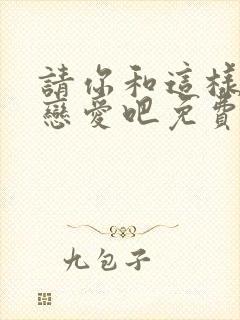 請你和這樣
戀愛吧免費
九包子